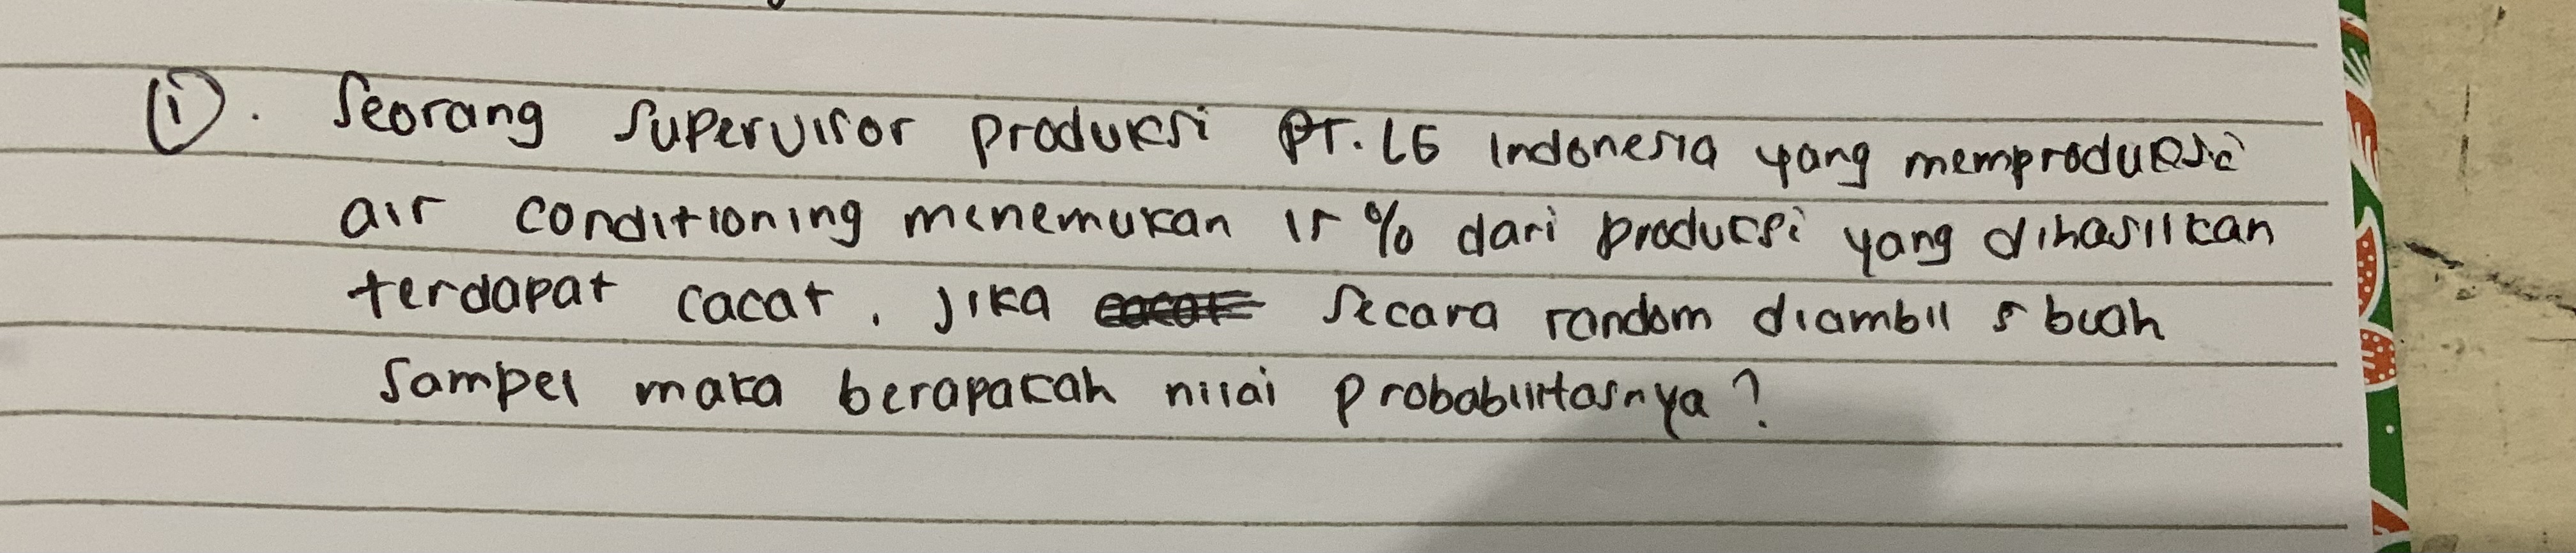 ①. Seorang supervisor produksi PT. LG Indonesia yang memproduksi
air conditioning menemukan 15 % dari produksi yang dihasilkan
terdapat cacat. Jika secara random diambil 5 buah
sampel maka berapakah nilai probabilitasnya?